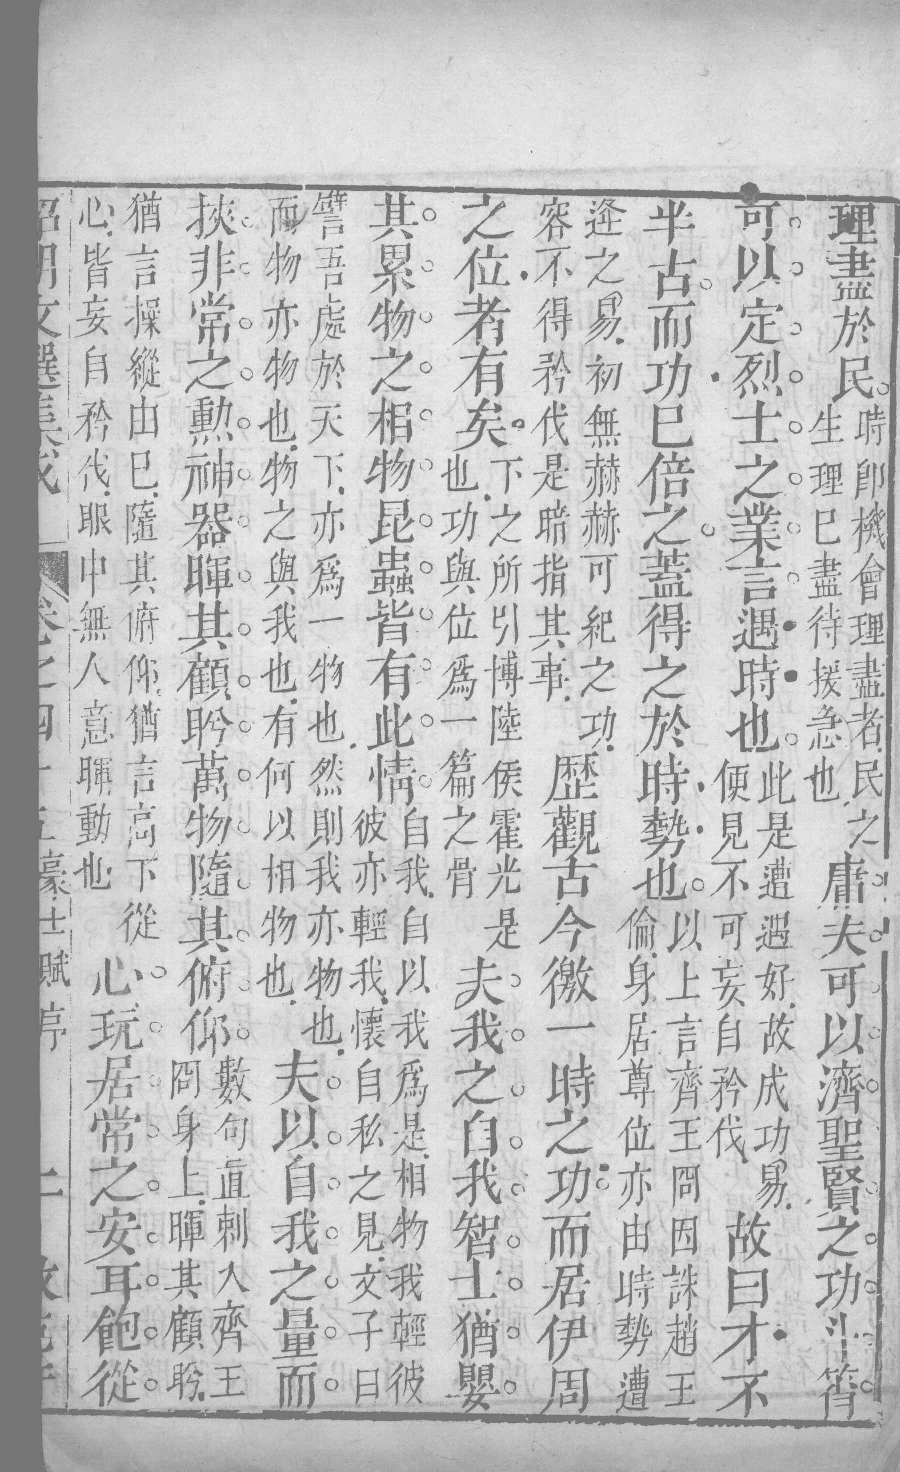 理盡於民時即機會理盡者民之生理已盡待援急也庸夫可以濟聖賢之功斗筲
可以定烈士之業言遇時也此是遭遇好故成功易便見不可妄自矜伐故曰才不
半古而功已倍之蓋得之於時勢也以上言齊王冏因誅趙王倫身居尊位亦由時勢遭
逢之易初無赫赫可紀之功容不得矜伐是暗指其事歷觀古今徼一時之功而居伊周
之位者有矣下之所引博陸侯霍光是也功與位爲一篇之骨夫我之自我智士猶嬰
其累物之相物昆蟲皆有此情自我自以我爲是相物我輕彼彼亦輕我懷自私之見文子曰
譬吾處於天下亦爲一物也然則我亦物也而物亦物也物之與我也有何以相物也夫以自我之量而
挾非常之勳神器暉其顧盻萬物隨其俯仰數句直刺入齊王冏身上暉其顧盻
猶言操縱由已隨其俯仰猶言高下從心皆妄自矜伐眼中無人意暉動也心玩居常之安耳飽從
昭明文選集成 卷之四十五豪士賦序